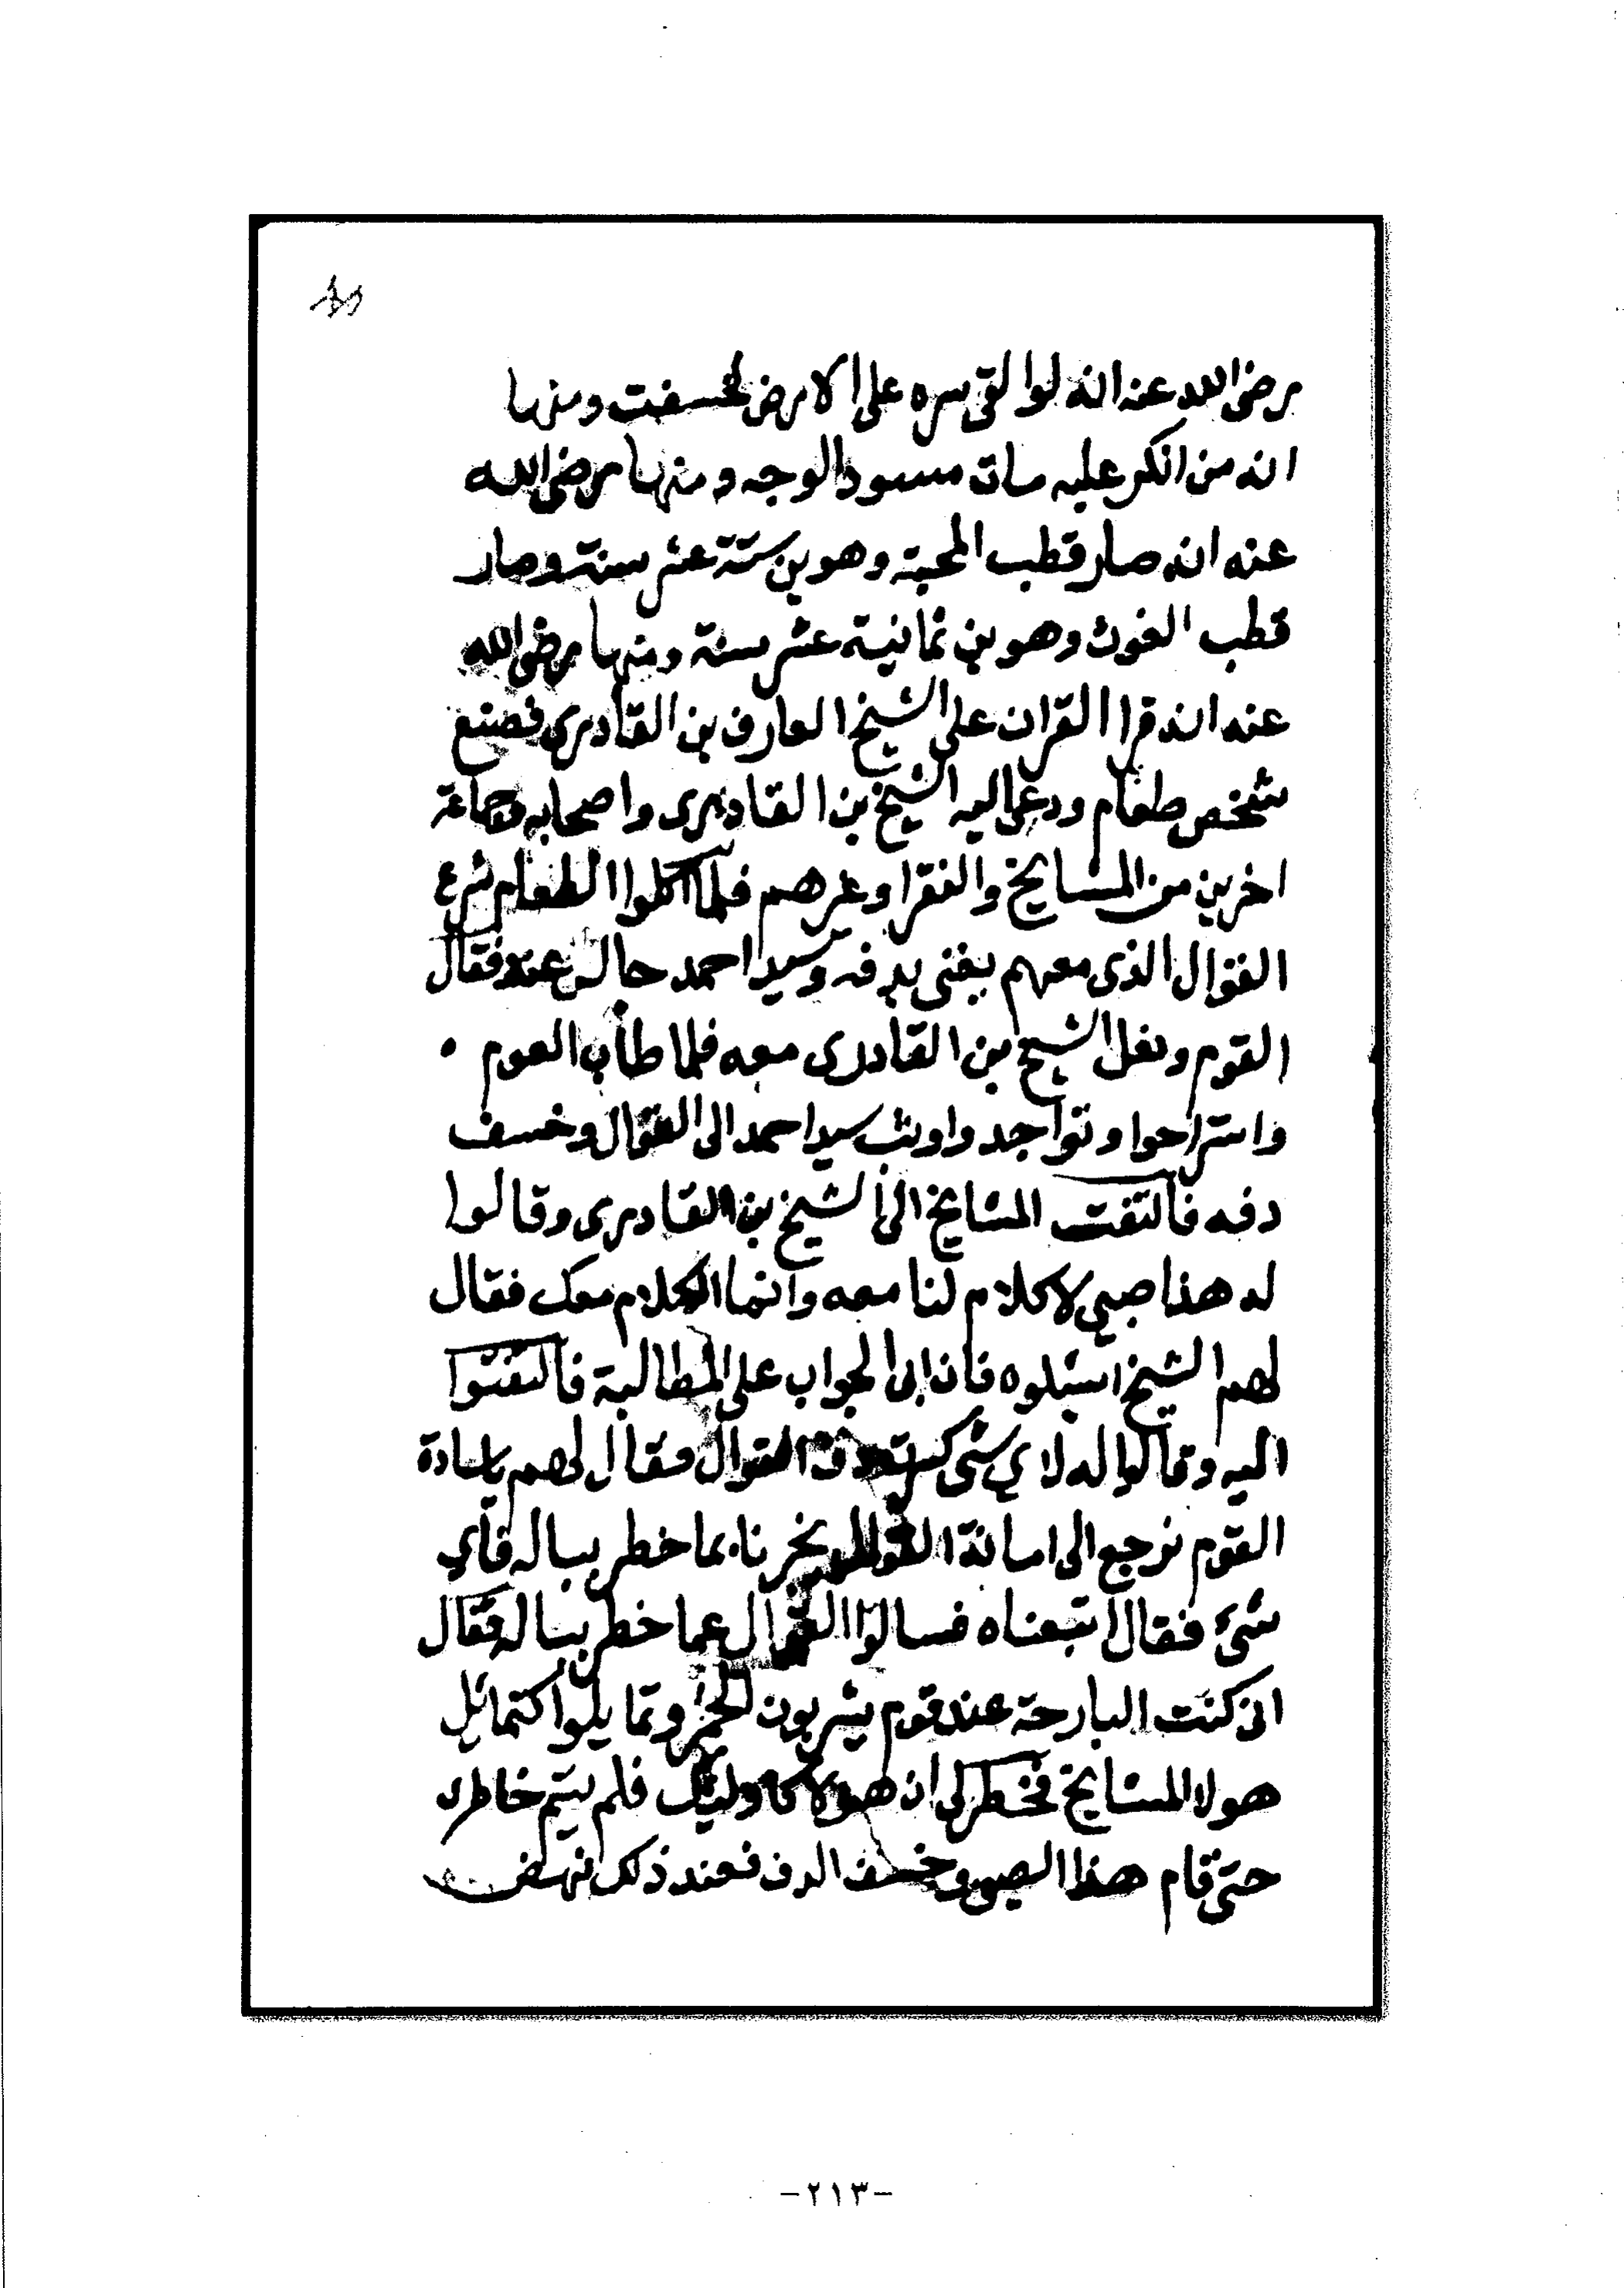 رضى الله عنه انه لوا لقى سره على الارض لخسفت ومنها
انه من انكر عليه مات مسود الوجه ومنها رضى الله
عنه انه صار قطب المحبة وهو بن ستة عشر سنة وصار
قطب الغوث وهو بن ثمانية عشر سنة ومنها رضى الله
عنه انه قرا القران على الشيخ العارف بن القادرى فصنع
شخص طعام ودعى اليه الشيخ بن القادرى واصحابه وجماعة
اخرين من المشايخ والفقرا وغرهم فلما اكلوا الطعام شرع
القوال الذى معهم يغنى بدفه وسيد احمد جالس عند فقال
القوم وفعل الشيخ بن القادرى معه فلما طاب القوم
واستراحوا وتواجد واوثب سيد احمد الى القوال وخسف
دفه فالتفت المشايخ الى الشيخ بن القادرى وقالوا
له هذا صبي لا كلام لنا معه وانما الكلام معك فقال
لهم الشيخ اسئلوه فان ابى الجواب على المطالبة فالتفتوا
اليه وقالوا له لاي شى كسرت دف القوال فقال لهم ياسادة
القوم نرجع الى امانة القوال يخبرنا بما خطر بباله فأي
شئ فقال اتبعناه فسالوا القوال عما خطر بباله فقال
انى كنت البارحة عند قوم يشربون الخمر وتمايلوا كتمائل
هولا المشايخ فخطر لى ان هولا كاوليك فلم يتم خاطرى
حتى قام هذا الصبى وخسف الدف فعند ذلك نهض
-٢١٣-